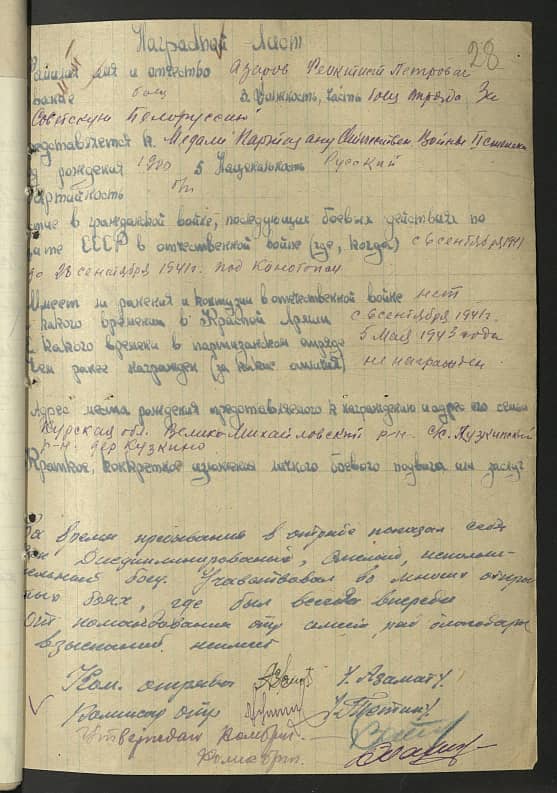 28
Наградной Лист
Фамилия имя и отчество Азаров Петрович
звание боец 3. Должность, часть боец отряда „За
Советскую Белоруссию"
представляется к Медали Партизану Войны II степени
рождения 1900 5 Национальность Русский
партийность б/п
участие в гражданской войне, последующих боевых действиях по
защите СССР в отечественной войне (где, когда) с 6 сентября 1941
до 28 сентября 1941г. под Конотопом
Имеет ли ранения и контузии в отечественной войне нет
с какого времени в Красной Армии с 6 сентября 1941г.
с какого времени в партизанском отряде 5 мая 1943 года
чем ранее награжден (за какие отличия) не награжден
Адрес места рождения представляемого к награждению и адрес его семьи
Курская обл. Велико Михайловский р-н. с/с.
р-н. дер Кузкино
Краткое, конкретное изложение личного боевого подвига или заслуг
За время пребывания в отряде показал себя
как Дисциплинированый, смелый, исполни-
тельный боец. Учавствовал во многих откры
тых боях, где был всегда впереди
От командования отр имеет благодарн
взысканий неимеет
Ком. отряда / Азамат /
Комиссар отр
Утверждаю Комбриг
Комис бриг.